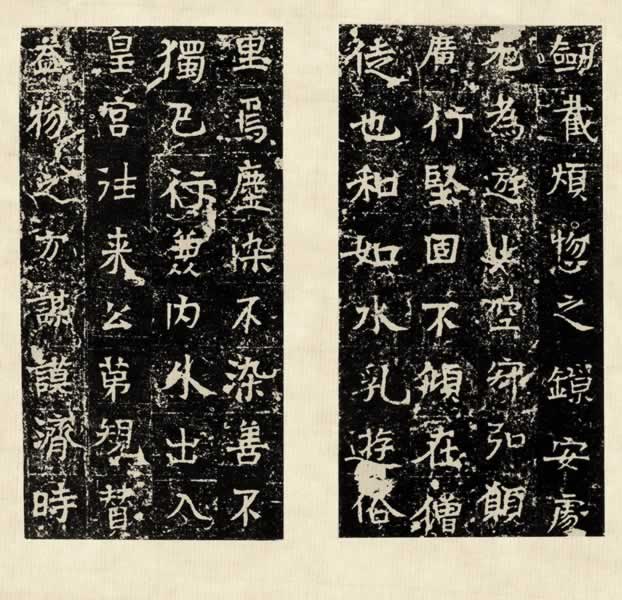 劔截煩惱之鏁安處
无為遊止空寂弘願
廣行堅固不傾在僧
徒也和如水乳遊俗
里焉塵染不染善不
獨己行兼內外出入
皇宮往来公第規替
益物之方謀謨濟時